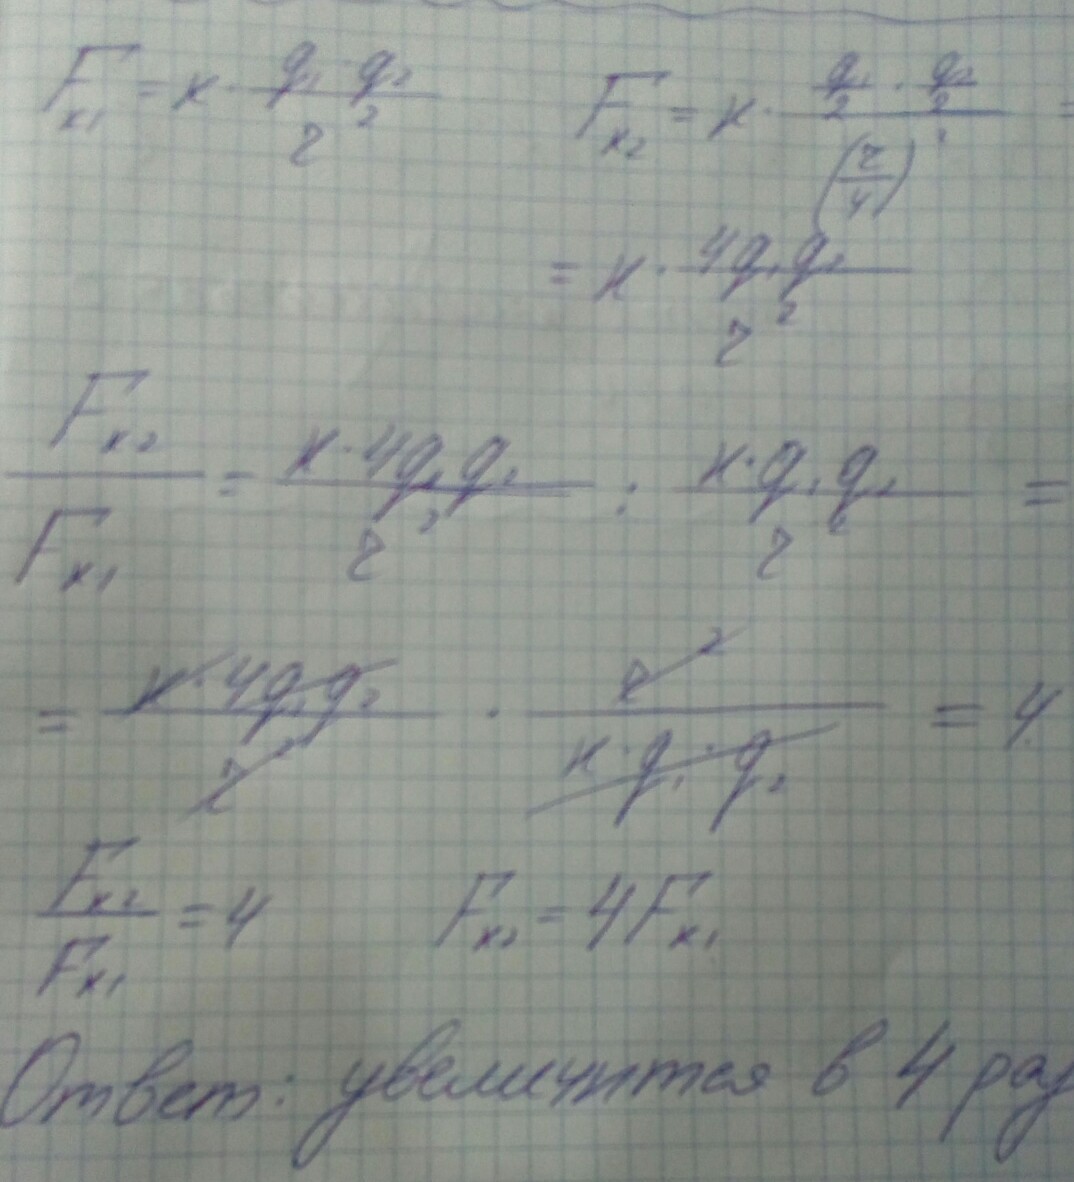 Fк₁ = к · q₁ · q₂ / r²    Fк₂ = к · (q₁/2 · q₂/2) / (r/4)² =
= к · 4q₁q₂ / r²
Fк₂ / Fк₁ = к · 4q₁q₂ / r² : к · q₁q₂ / r² =
= к · 4q₁q₂ / r² · r² / к · q₁ · q₂ = 4
Fк₂ / Fк₁ = 4    Fк₂ = 4Fк₁
Ответ: увеличится в 4 раз